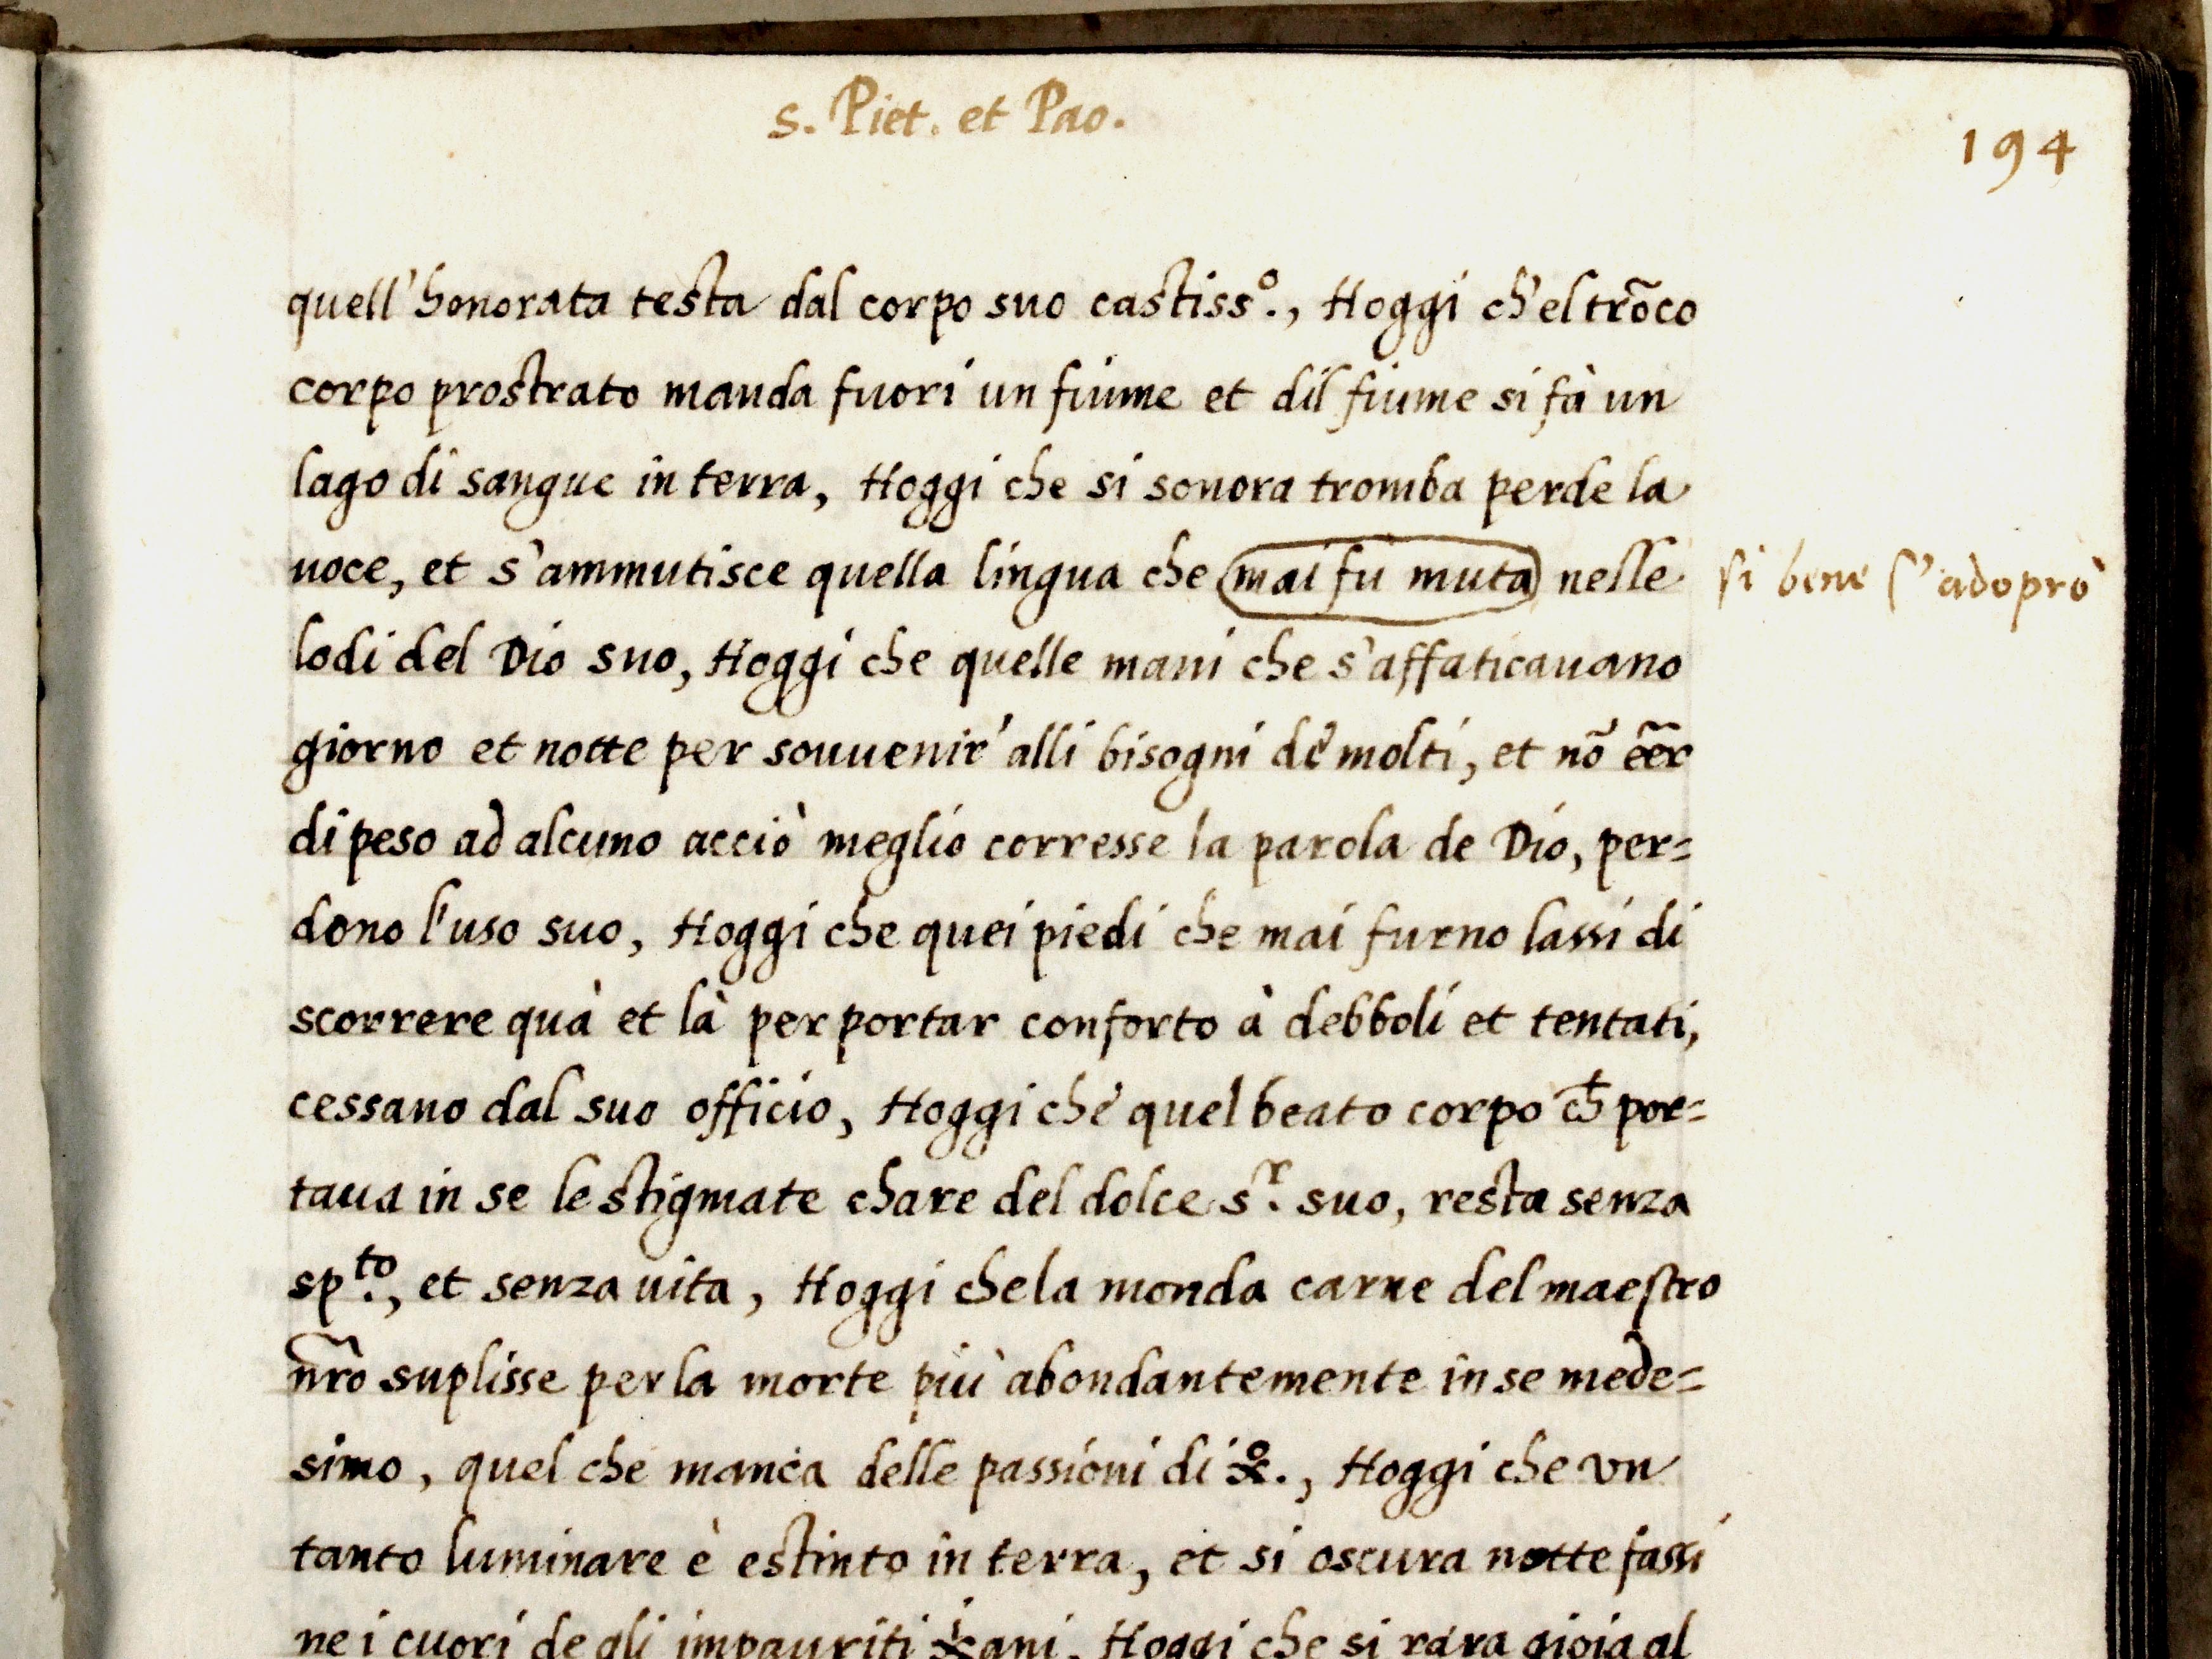 s. Piet. et Pao.
194
quell'honorata testa dal corpo suo castiss⁰., Hoggi ch'el trõco
corpo prostrato manda fuori un fiume et dil fiume si fà un
lago di sangue in terra, Hoggi che si sonora tromba perde la
uoce, et s'ammutisce quella lingua che mai fù muta nelle
si bene s'adoprò
lodi del Dio suo, Hoggi che quelle mani che s'affaticauano
giorno et notte per souuenir' alli bisogni de' molti, et nõ eẽr
di peso ad alcuno acciò meglio corresse la parola de Dio, per=
dono l'uso suo, Hoggi che quei piedi che mai furno lassi di
scorrere quà et là per portar conforto à debboli et tentati,
cessano dal suo officio, Hoggi che quel beato corpo cħ por=
taua in se le stigmate chare del dolce sʳ. suo, resta senza
spᵗᵒ., et senza uita, Hoggi che la monda carne del maestro
nr̃o suplisse per la morte più abondantemente in se mede=
simo, quel che manca delle passioni di x⁰., Hoggi che vn
tanto luminare è estinto in terra, et si oscura notte fassi
ne i cuori de gli impauriti xⁱani, Hoggi che si rara gioia al